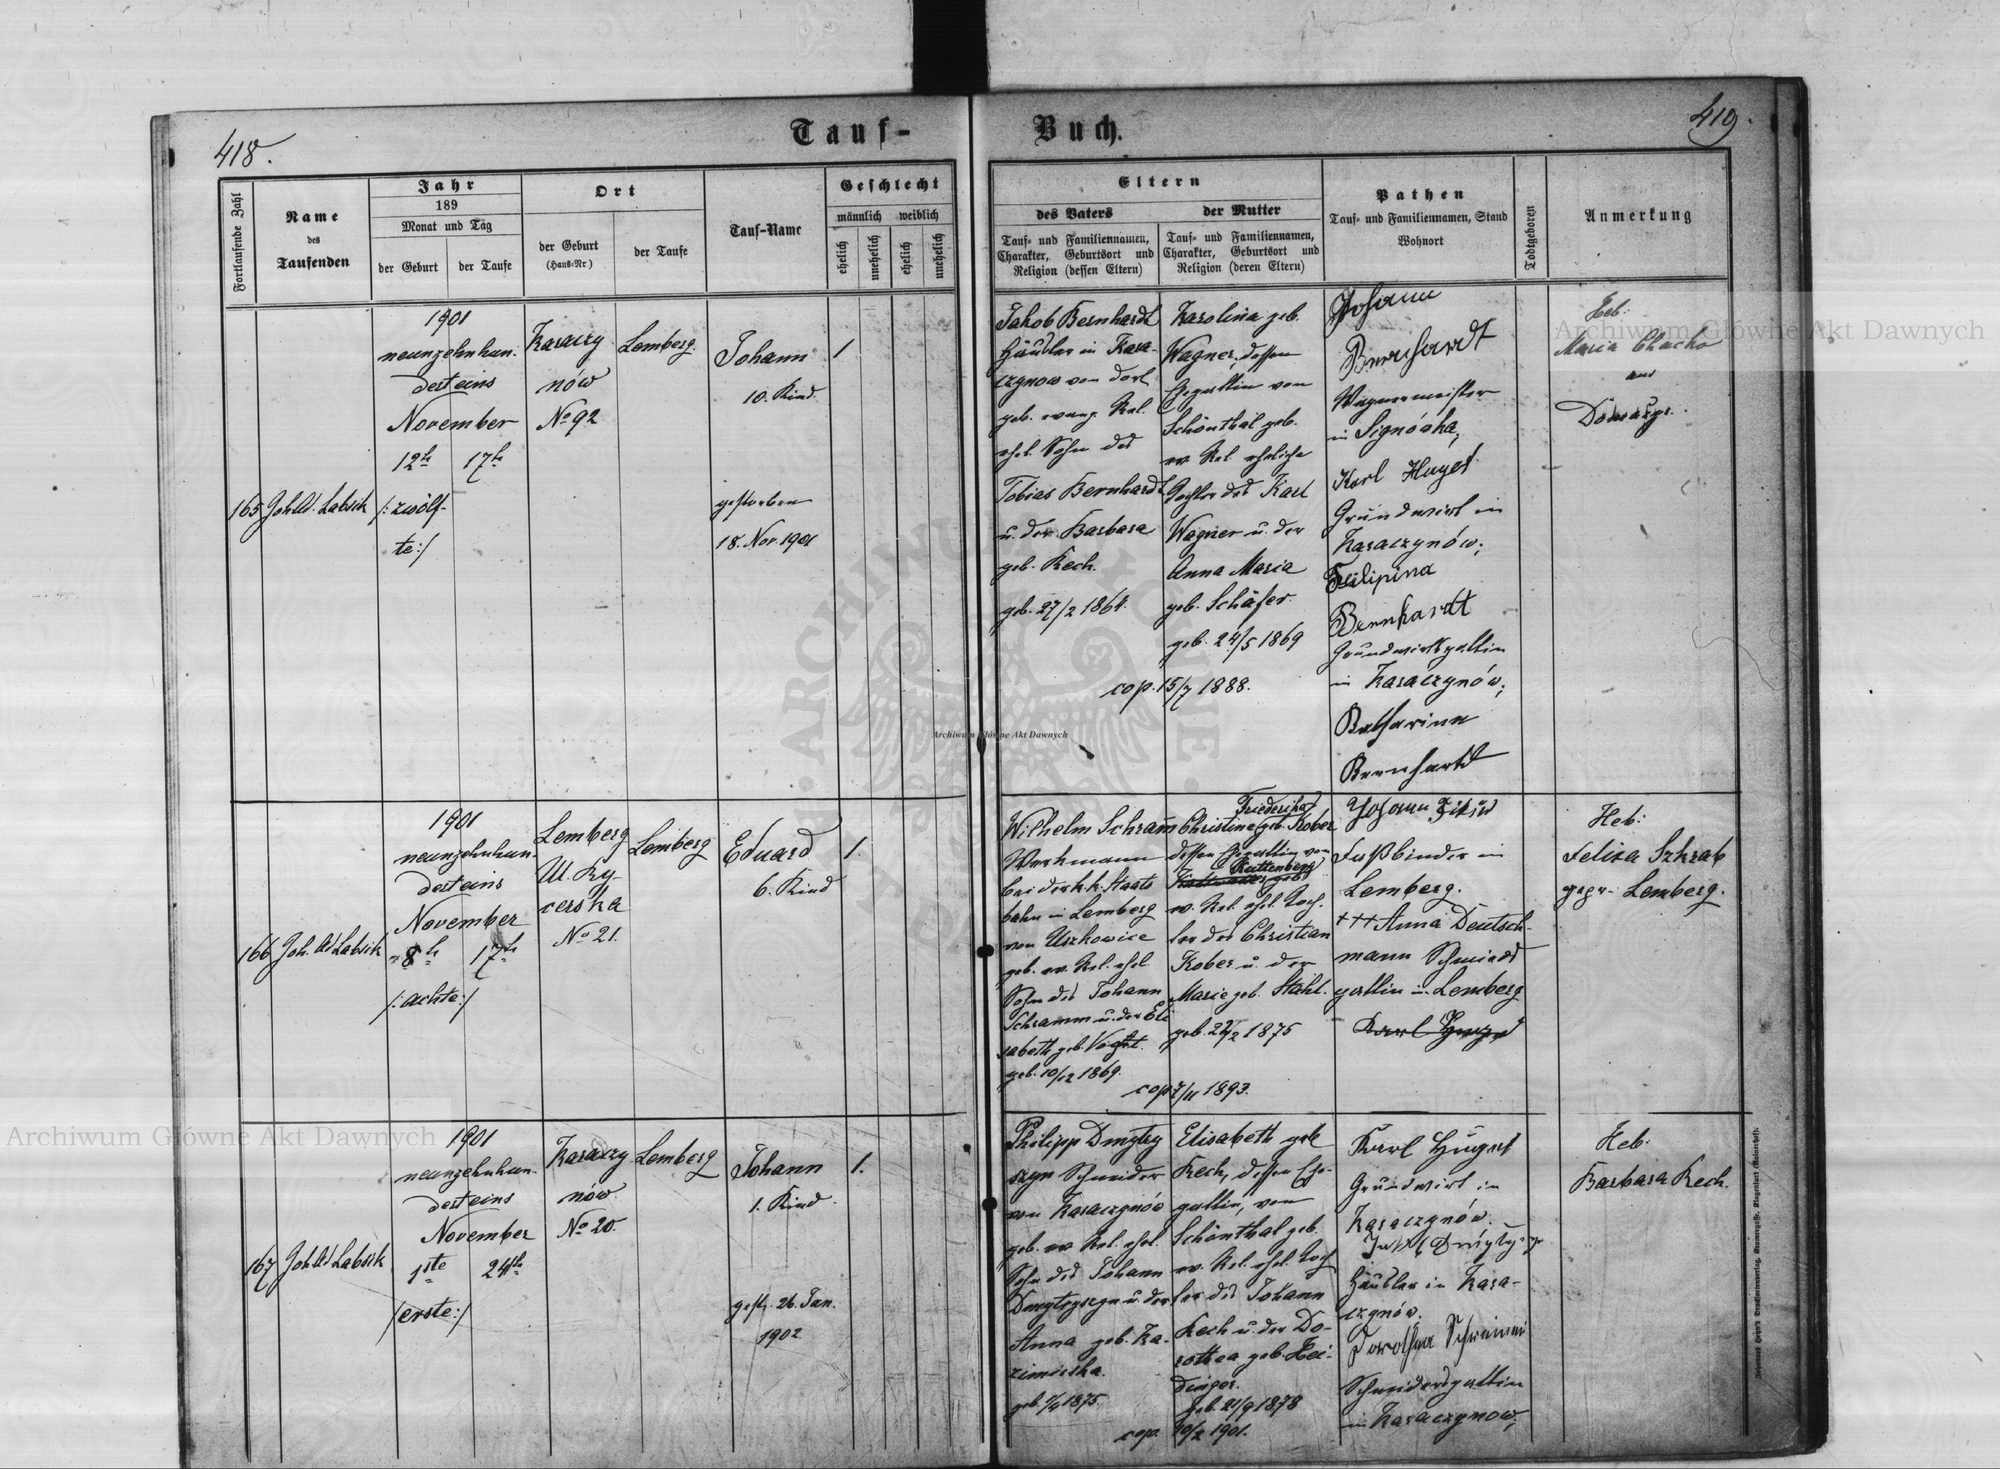 418.
Tauf-
Buch.
419.
Fortlaufende Zahl
Name
des
Taufenden
Jahr
189
Monat und Tag
der Geburt
der Taufe
Ort
der Geburt
(Haus-Nr.)
der Taufe
Tauf-Name
Geschlecht
männlich
weiblich
ehelich
unehelich
ehelich
unehelich
Eltern
des Vaters
Tauf- und Familiennamen,
Charakter, Geburtsort und
Religion (dessen Eltern)
der Mutter
Tauf- und Familiennamen,
Charakter, Geburtsort und
Religion (deren Eltern)
Pathen
Tauf- und Familiennamen, Stand
Wohnort
Todtgeboren
Anmerkung
165
1901
neunzehnhun-
dert eins
November
12te
17te
/:zwölf-
te:/
Kasaczy
nów
No 92
Lemberg
Johann
10. Kind
gestorben
18. Nov. 1901
1
Jakob Bernhardt
Häusler in Kasa-
czynow von dort
geb. evang. Rel.
ehel. Sohn des
Tobias Bernhardt
u. der Barbara
geb. Kech.
geb. 27/2 1864.
Karolina geb.
Wagner, dessen
Ehegattin von
Schönthal geb.
ev. Rel. eheliche
Tochter des Karl
Wagner u. der
Anna Maria
geb. Schäfer.
geb. 24/5 1869
cop. 15/7 1888.
Johann
Bernhardt
Wagnermeister
in Signówka,
Karl Huget
Grundwirt in
Kasaczynów;
Filipina
Bernhardt
Grundwirtsgattin
in Kasaczynów;
Katharina
Bernhardt
Heb:
Maria
aus
166
1901
neunzehnhun-
dert eins
November
8te
17te
/:achte:/
Lemberg
Ul. Ry-
cerska
No 21.
Lemberg
Eduard
6. Kind
1.
Wilhelm Schramm
Werkmann
bei der k. k. Staats
bahn in Lemberg
von Uszkowice
geb. ev. Rel. ehel.
Sohn des Johann
Schramm u. der Eli
sabeth geb. Vogt.
geb. 10/12 1869.
Friederike
Christine geb. Kober
dessen Ehegattin von
Kuttenberg
ev. Rel. ehel. Toch-
ter des Christian
Kober u. der
Marie geb. Stahl.
geb. 22/2 1875
cop. 7/11 1893.
Johann
Faßbinder in
Lemberg.
+++ Anna Deutsch-
mann Schmieds
gattin in Lemberg
Heb:
Felixa
Lemberg.
167
1901
neunzehnhun-
dert eins
November
1ste
24te
/erste:/
Kasaczy
nów
No 20
Lemberg
Johann
1. Kind
gest. 26. Jan.
1902
1.
Philipp Dmytry
szyn Schneider
von Kasaczynów
geb. ev. Rel. ehel.
Sohn des Johann
Dmytryszyn u. der
Anna geb. Ka-
zimirska.
1875.
Elisabeth geb.
Kech, dessen Ehe-
gattin, von
Schönthal geb.
ev. Rel. ehel. Toch
ter des Johann
Kech u. der Do-
rothea geb. Hei-
dinger.
geb. 21/9 1878
cop. 10/2 1901.
Karl Huget
Grundwirt in
Kasaczynów.
Häusler in Kasa-
czynów.
Dorothea
Schneidersgattin
in Kasaczynow,
Heb:
Barbara Kech.
Archiwum Główne Akt Dawnych
Archiwum Główne Akt Dawnych
Archiwum Główne Akt Dawnych